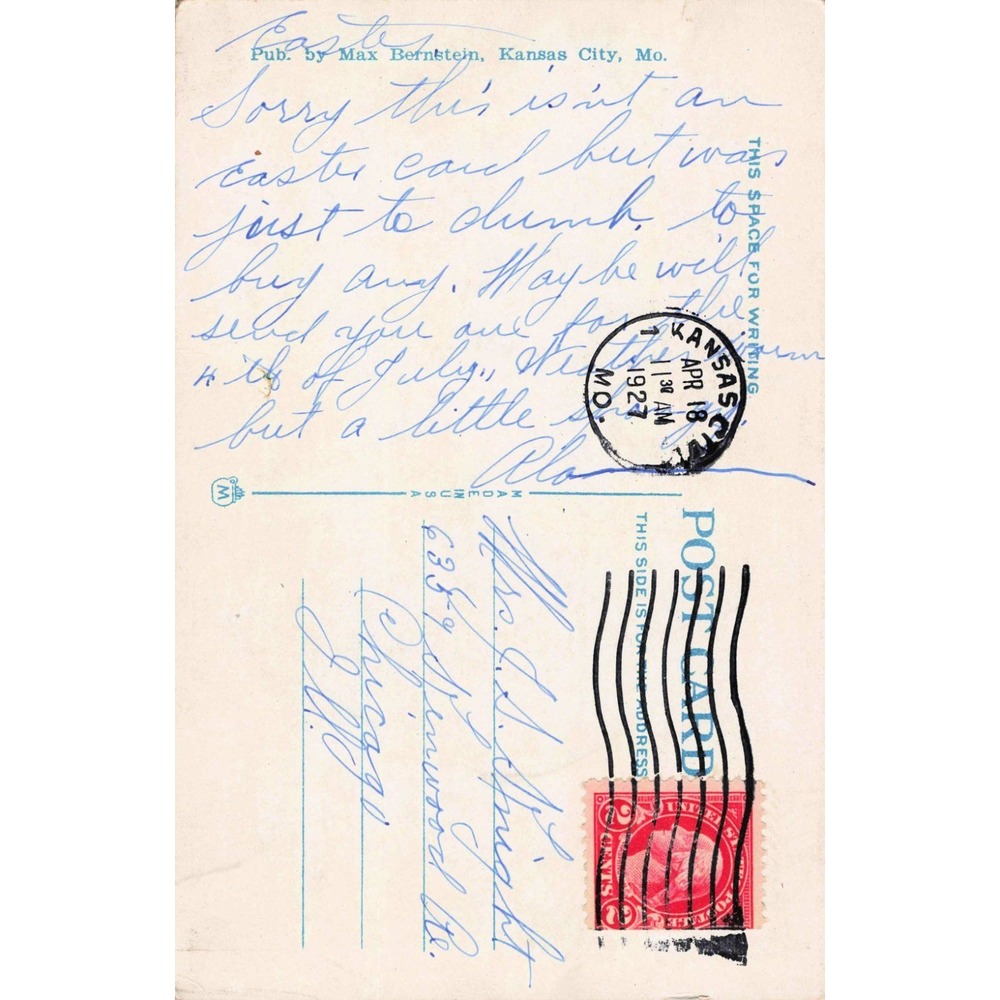 Easter
Pub. by Max Bernstein, Kansas City, Mo.
Sorry this isn't an
easter card but was
just to dumb to
buy any. Maybe will
send you one for the
4th of July,, Weather warm
but a little
THIS SPACE FOR WRITING
KANSAS CITY
1
APR 18
11 30 AM
1927
MO.
M
MADE
IN
USA
POST CARD
THIS SIDE IS FOR THE ADDRESS
Mrs. J.
Chicago
Ill.
2 CENTS 2